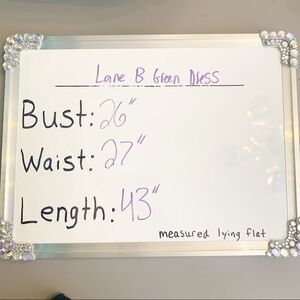 Lane B Green Dress
Bust: 26"
Waist: 27"
Length: 43"
measured lying flat